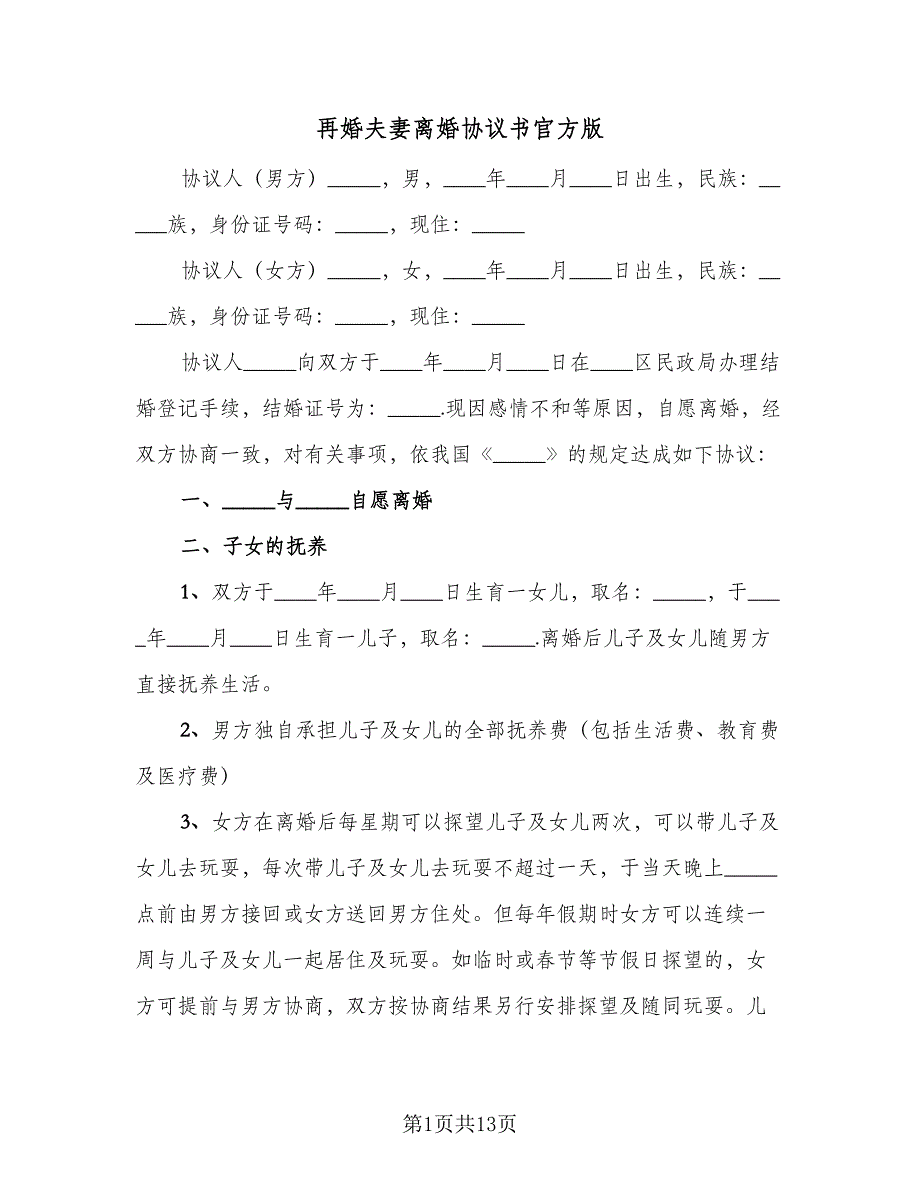 再婚夫妻离婚协议书官方版
协议人（男方）_____，男，____年____月____日出生，民族：__
___族，身份证号码：_____，现住：_____
协议人（女方）_____，女，____年____月____日出生，民族：__
___族，身份证号码：_____，现住：_____
协议人_____向双方于____年____月____日在____区民政局办理结
婚登记手续，结婚证号为：_____.现因感情不和等原因，自愿离婚，经
双方协商一致，对有关事项，依我国《_____》的规定达成如下协议：
一、_____与_____自愿离婚
二、子女的抚养
1、双方于____年____月____日生育一女儿，取名：_____，于___
_年____月____日生育一儿子，取名：_____.离婚后儿子及女儿随男方
直接抚养生活。
2、男方独自承担儿子及女儿的全部抚养费（包括生活费、教育费
及医疗费）
3、女方在离婚后每星期可以探望儿子及女儿两次，可以带儿子及
女儿去玩耍，每次带儿子及女儿去玩耍不超过一天，于当天晚上_____
点前由男方接回或女方送回男方住处。但每年假期时女方可以连续一
周与儿子及女儿一起居住及玩耍。如临时或春节等节假日探望的，女
方可提前与男方协商，双方按协商结果另行安排探望及随同玩耍。儿
第1页共13页